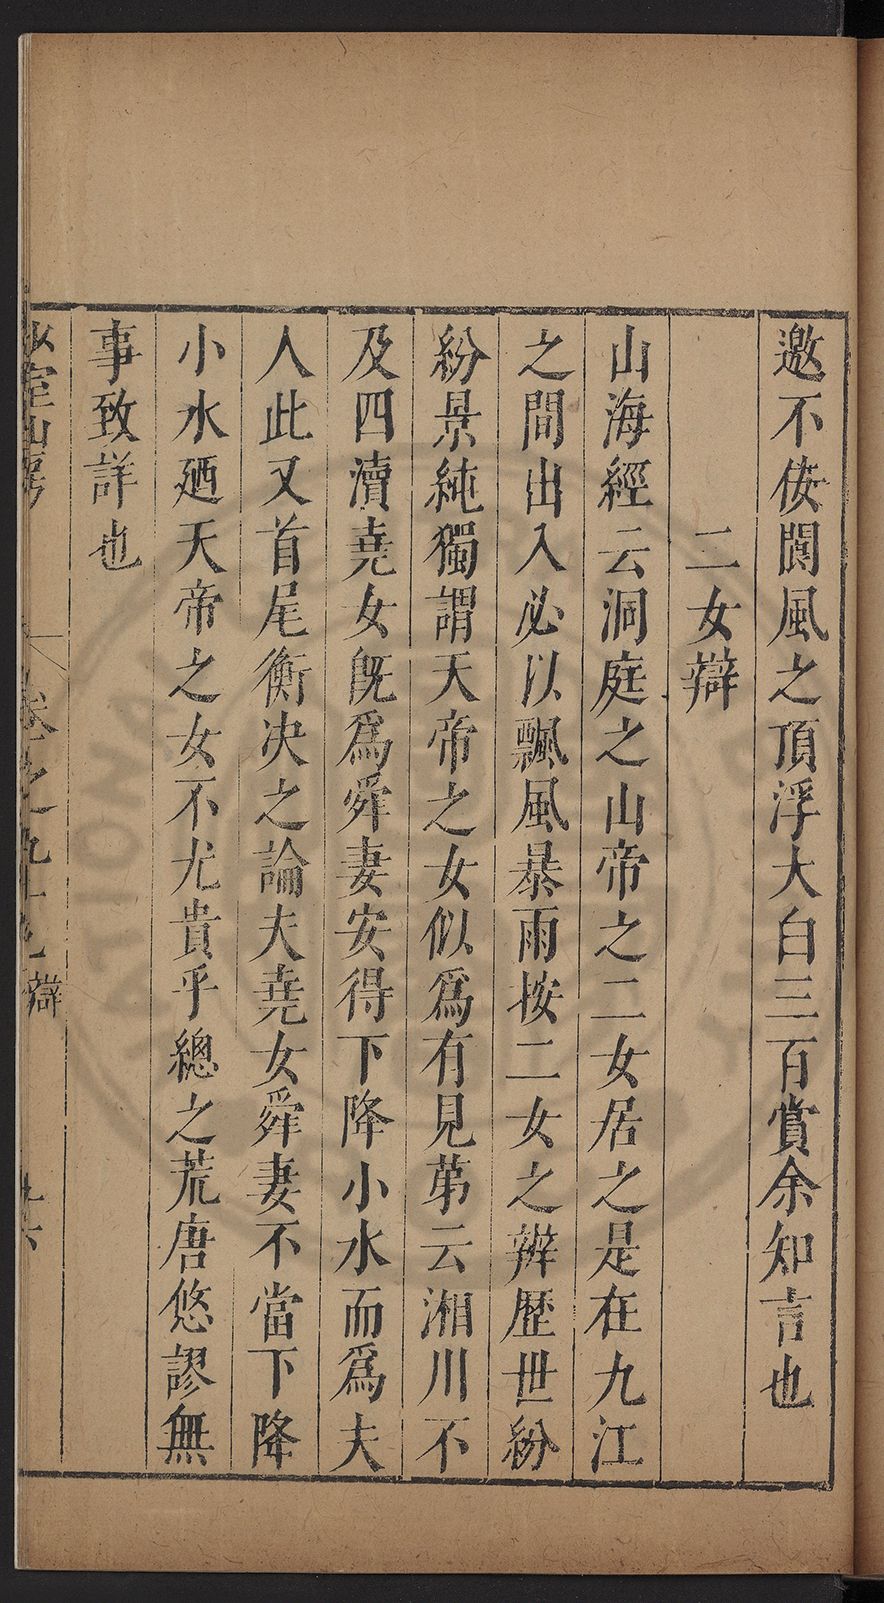 邀不佞閬風之頂浮大白三百賞余知言也
二女辯
山海經云洞庭之山帝之二女居之是在九江
之間出入必以飄風暴雨按二女之辨歷世紛
紛景純獨謂天帝之女似爲有見第云湘川不
及四瀆堯女旣爲舜妻安得下降小水而爲夫
人此又首尾衡决之論夫堯女舜妻不當下降
小水廼天帝之女不尤貴乎總之荒唐悠謬無
事致詳也
少室山房
卷之九十九 辯